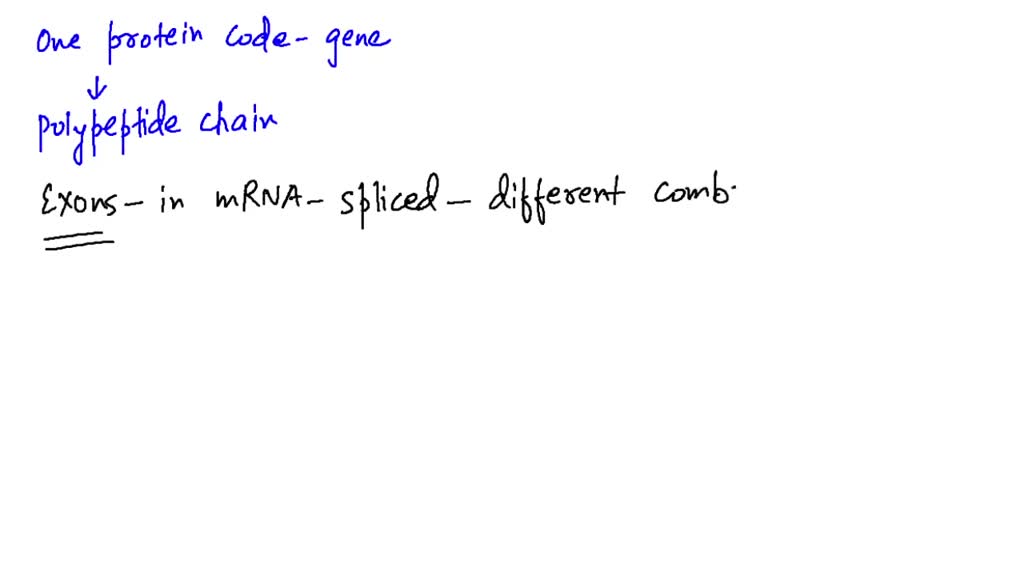 One protein code - gene
↓
polypeptide chain
Exons - in mRNA - spliced - different comb.